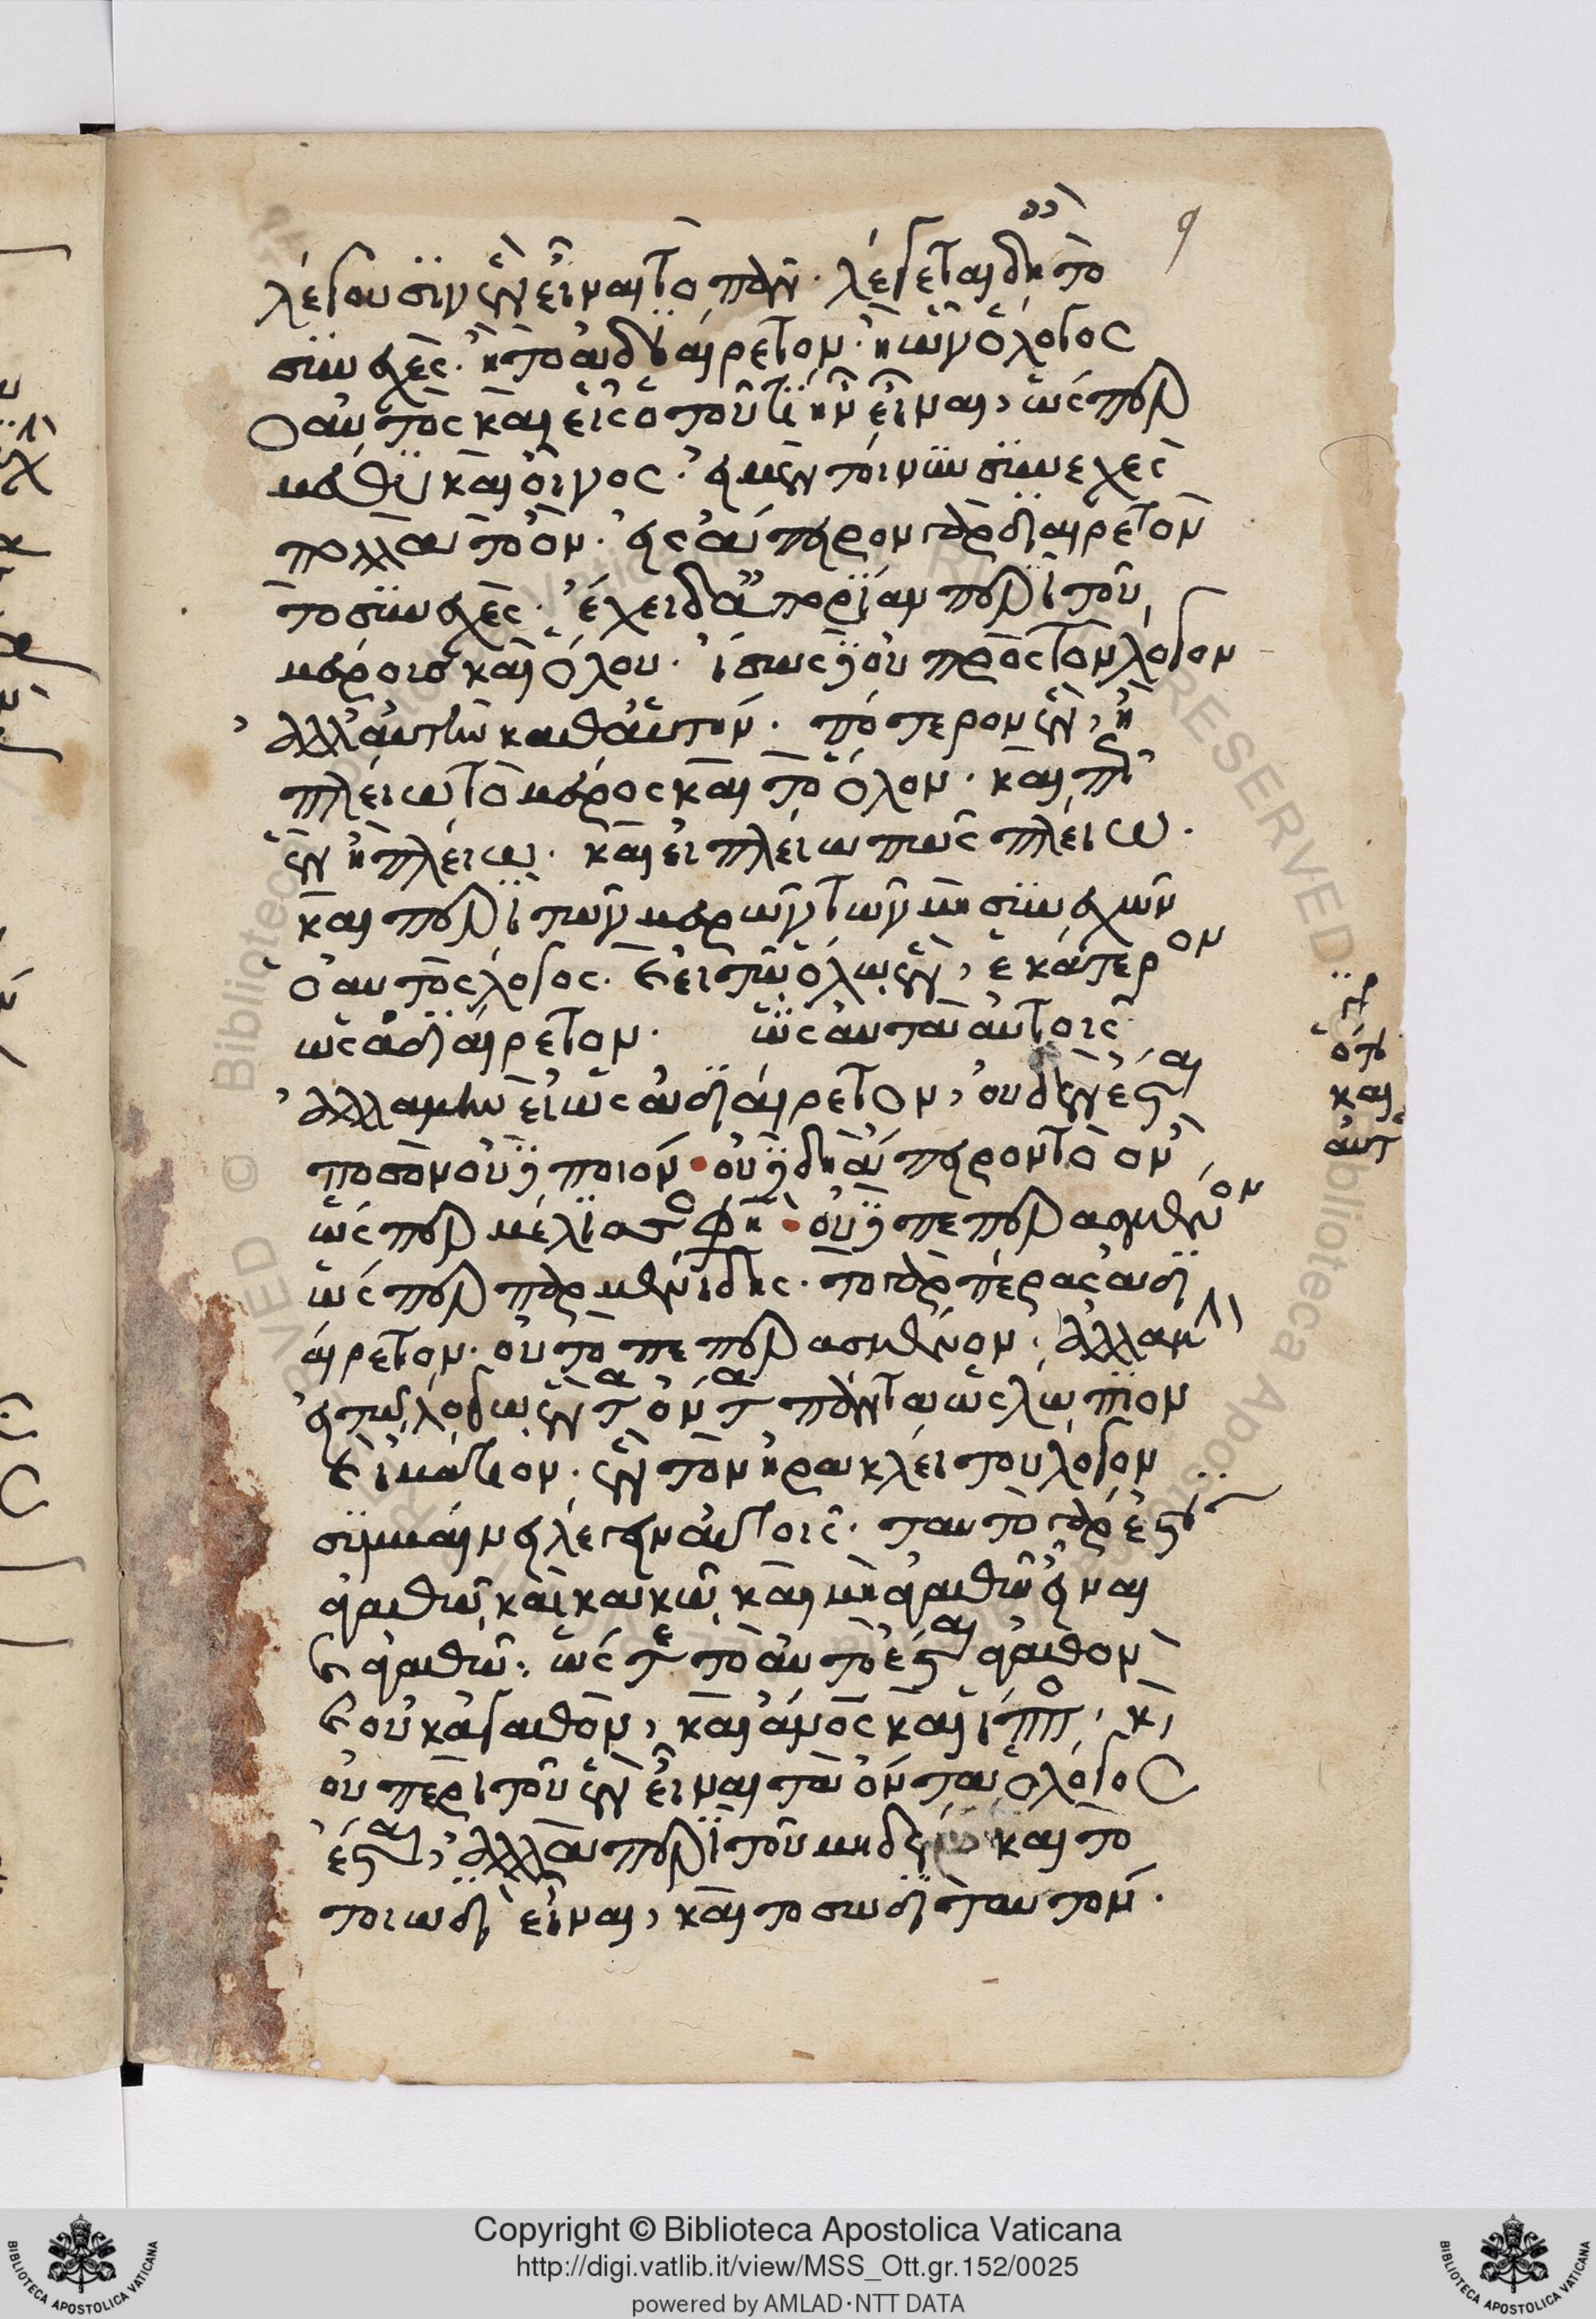 λέγουσϊν ἓν εἶναι τὸ πᾶν· λέγεται δὴ τὸ
συνεχὲς· ἢ τὸ ἀδιαίρετον· ἢ ὧν ὁ λόγος
ὁ αὐτὸς καὶ εἷς ὁ τοῦ τί ἦν εἶναι, ὥσπερ
μέθυ καὶ οἶνος· εἰ μὲν τοίνυν συνεχὲς
πολλὰ τὸ ὂν· εἰς ἄπειρον γὰρ διαιρετὸν
τὸ συνεχὲς· ἔχει δ' ἀπορίαν περὶ τοῦ
μέρους καὶ ὅλου· ἴσως δὲ οὐ πρὸς τὸν λόγον
ἀλλ' αὐτὴν καθ' αὑτήν· πότερον ἓν, ἢ
πλείω τὸ μέρος καὶ τὸ ὅλον· καὶ πῶς
ἓν ἢ πλείω· καὶ εἰ πλείω πῶς πλείω·
καὶ περὶ τῶν μερῶν τῶν μὴ συνεχῶν
ὁ αὐτὸς λόγος· καὶ εἰ τῷ ὅλῳ ἓν, ἑκάτερον
ὡς ἀδιαίρετον· ὡς αὐτὰ αὑτοῖς
ἀλλὰ μὴν εἰ ὡς ἀδιαίρετον, οὐδὲν ἔσται
ποσὸν οὐδὲ ποιόν· οὐδὲ δὴ ἄπειρον τὸ ὂν
ὥσπερ μέλισσος φησὶ· οὐδὲ πεπερασμένον
ὥσπερ παρμενίδης· τὸ γὰρ πέρας ἀδι
αίρετον· οὐ τὸ πεπερασμένον· ἀλλὰ μὴν
εἰ τῷ λόγῳ ἓν τὰ ὄντα πάντα ὡς λώπιον
καὶ ἱμάτιον· ἓν τὸν ἡρακλείτου λόγον
συμβαίνει λέγειν αὐτοῖς· ταὐτὸ γὰρ ἔσται
ἀγαθῷ καὶ κακῷ καὶ μὴ ἀγαθῷ εἶναι
καὶ ἀγαθῷ· ὥστε τὸ αὐτὸ ἔσται ἀγαθὸν
καὶ οὐκ ἀγαθὸν, καὶ ἄνος καὶ ἵππος, καὶ
οὐ περὶ τοῦ ἓν εἶναι τὰ ὄντα ὁ λόγος
ἔσται, ἀλλὰ περὶ τοῦ μηδὲν καὶ τὸ
τοιῳδὶ εἶναι, καὶ τοσῳδὶ ταὐτόν·
Copyright © Biblioteca Apostolica Vaticana
http://digi.vatlib.it/view/MSS_Ott.gr.152/0025
powered by AMLAD·NTT DATA